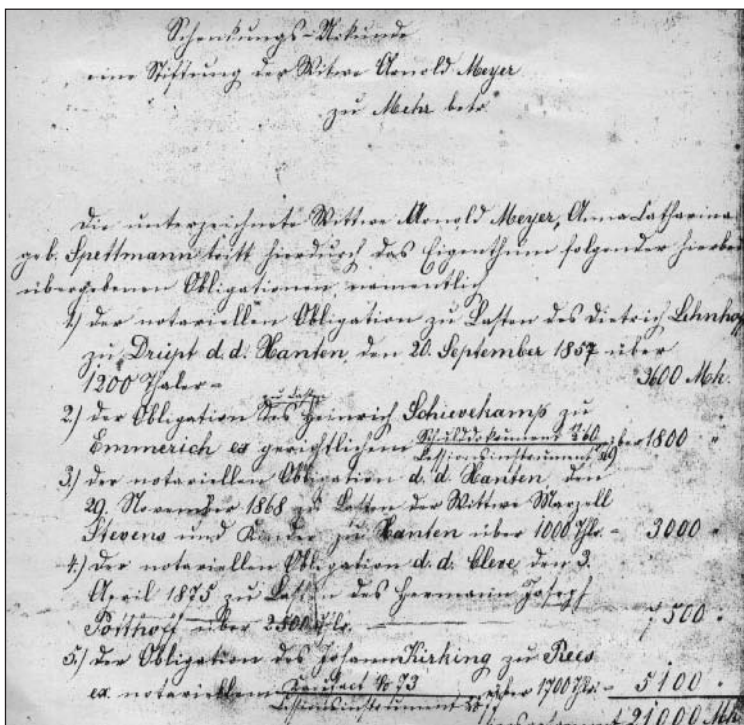 Schenkungs-Urkunde
eine Stiftung der Witwe Arnold Meyer
zu Mehr betr.
Die unterzeichnete Wittwe Arnold Meyer, Anna Catharina
geb. Spettmann tritt hierdurch das Eigenthum folgender hierbei
übergebenen Obligationen, namentlich
1.) der notariellen Obligation zu Lasten des Dietrich Lehnhof
zu Drüpt d.d. Xanten, den 20. September 1857 über
1200 Thaler = 3600 Mk.
zu Lasten
2.) der Obligation des Heinrich Schievekamp zu
Emmerich ex gerichtlichem Schulddokument 360 über 1800 "
Cessionsinstrument
3.) der notariellen Obligation d.d. Xanten, den
29. November 1868 zu Lasten der Wittwe Marzell
Stevens und Kinder zu Xanten über 1000 Thlr. = 3000 "
4.) der notariellen Obligation d.d. Cleve, den 3.
April 1875 zu Lasten des Hermann Joseph
Potthoff über 2500 Thlr. 7500 "
5.) der Obligation des Johann Kirking zu Rees
ex notariellem Kaufact No 73 über 1700 Thlr. = 5100 "
Cessionsinstrument
21000 Mk